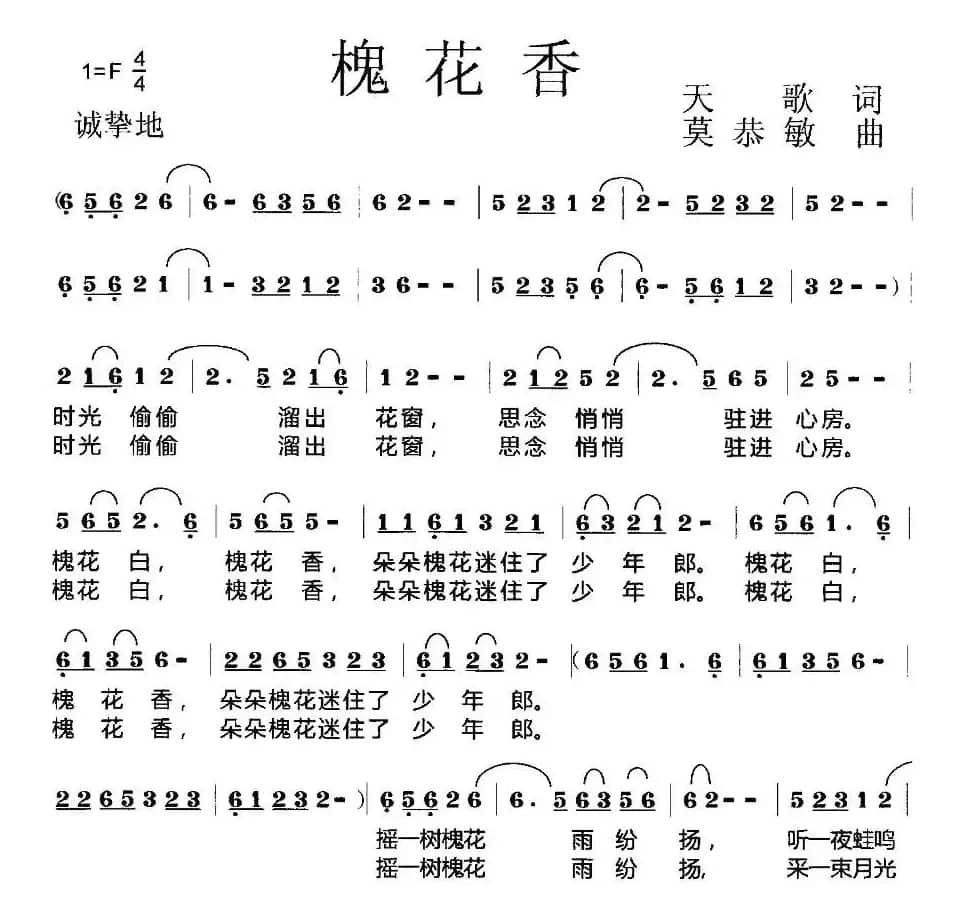 槐花香
1=F 4/4
诚挚地
天歌 词
莫恭敏 曲
(6 5 6 2 6 | 6 - 6 3 5 6 | 6 2 - - | 5 2 3 1 2 | 2 - 5 2 3 2 | 5 2 - - |
6 5 6 2 1 | 1 - 3 2 1 2 | 3 6 - - | 5 2 3 5 6 | 6 - 5 6 1 2 | 3 2 - - ) |
2 1 6 1 2 | 2. 5 2 1 6 | 1 2 - - | 2 1 2 5 2 | 2. 5 6 5 | 2 5 - - |
时光 偷偷 溜出 花窗, 思念 悄悄 驻进 心房。
时光 偷偷 溜出 花窗, 思念 悄悄 驻进 心房。
5 6 5 2. 6 | 5 6 5 5 - | 1 1 6 1 3 2 1 | 6 3 2 1 2 - | 6 5 6 1. 6 |
槐花 白, 槐花 香, 朵朵槐花迷住了 少 年 郎。 槐花 白,
槐花 白, 槐花 香, 朵朵槐花迷住了 少 年 郎。 槐花 白,
6 1 3 5 6 - | 2 2 6 5 3 2 3 | 6 1 2 3 2 - | (6 5 6 1. 6 | 6 1 3 5 6 - |
槐 花 香, 朵朵槐花迷住了 少 年 郎。
槐 花 香, 朵朵槐花迷住了 少 年 郎。
2 2 6 5 3 2 3 | 6 1 2 3 2 - ) | 6 5 6 2 6 | 6. 5 6 3 5 6 | 6 2 - - | 5 2 3 1 2 |
摇一树槐花 雨 纷 扬, 听一夜蛙鸣
摇一树槐花 雨 纷 扬, 采一束月光